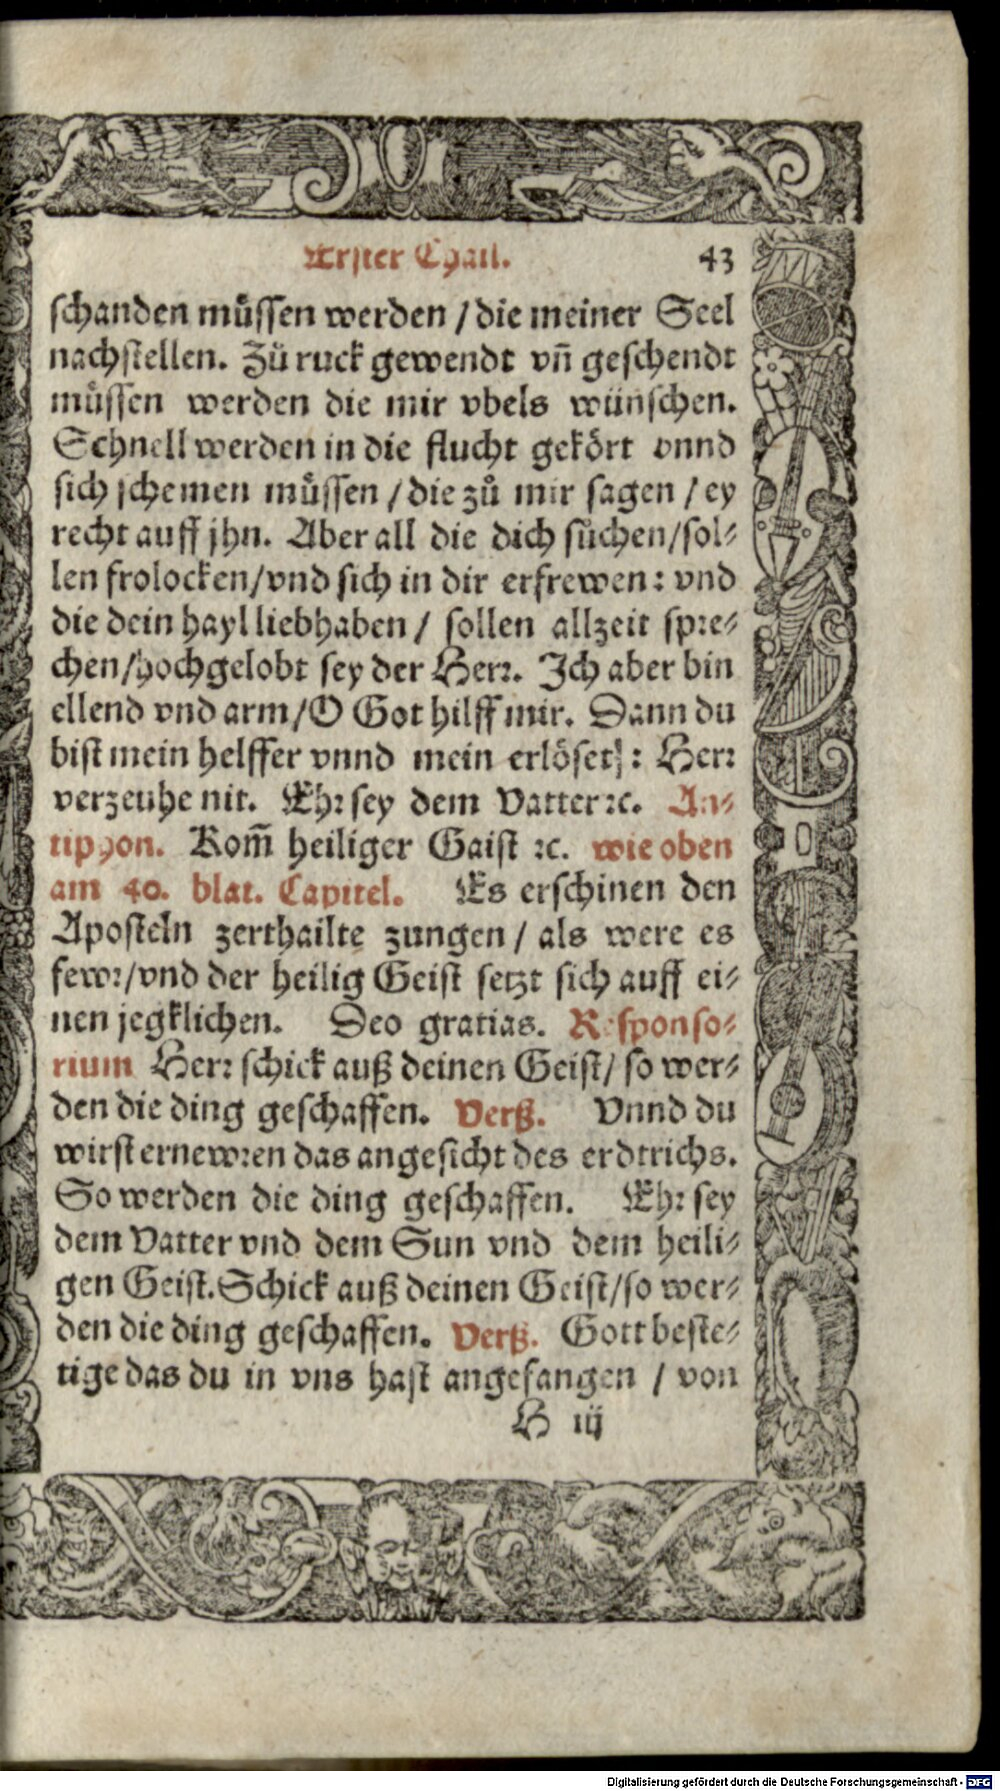 Erster Thail. 43
schanden müſſen werden / die meiner Seel
nachſtellen. Zů ruck gewendt vñ geſchendt
müſſen werden die mir vbels wünſchen.
Schnell werden in die flucht gekört vnnd
ſich ſchemen müſſen / die zů mir ſagen / ey
recht auff jhn. Aber all die dich ſůchen/ſol⸗
len frolocken/vnd ſich in dir erfrewen: vnd
die dein hayl liebhaben / ſollen allzeit ſpre⸗
chen/hochgelobt ſey der Herꝛ. Ich aber bin
ellend vnd arm/O Got hilff mir. Dann du
biſt mein helffer vnnd mein erlöſer: Herꝛ
verzeuhe nit. Ehꝛ ſey dem Vatter ꝛc. An⸗
tiphon. Kom̃ heiliger Gaiſt ꝛc. wie oben
am 40. blat. Capitel. Es erſchinen den
Apoſteln zerthailte zungen / als were es
fewꝛ/vnd der heilig Geiſt ſetzt ſich auff ei⸗
nen jegklichen. Deo gratias. Reſponſo⸗
rium Herꝛ ſchick auß deinen Geiſt/ ſo wer⸗
den die ding geſchaffen. Verß. Vnnd du
wirſt ernewꝛen das angeſicht des erdtrichs.
So werden die ding geſchaffen. Ehꝛ ſey
dem Vatter vnd dem Sun vnd dem heili⸗
gen Geiſt. Schick auß deinen Geiſt/ſo wer⸗
den die ding geſchaffen. Verß. Gott beſte⸗
tige das du in vns haſt angefangen / von
H iij
Digitalisierung gefördert durch die Deutsche Forschungsgemeinschaft - DFG